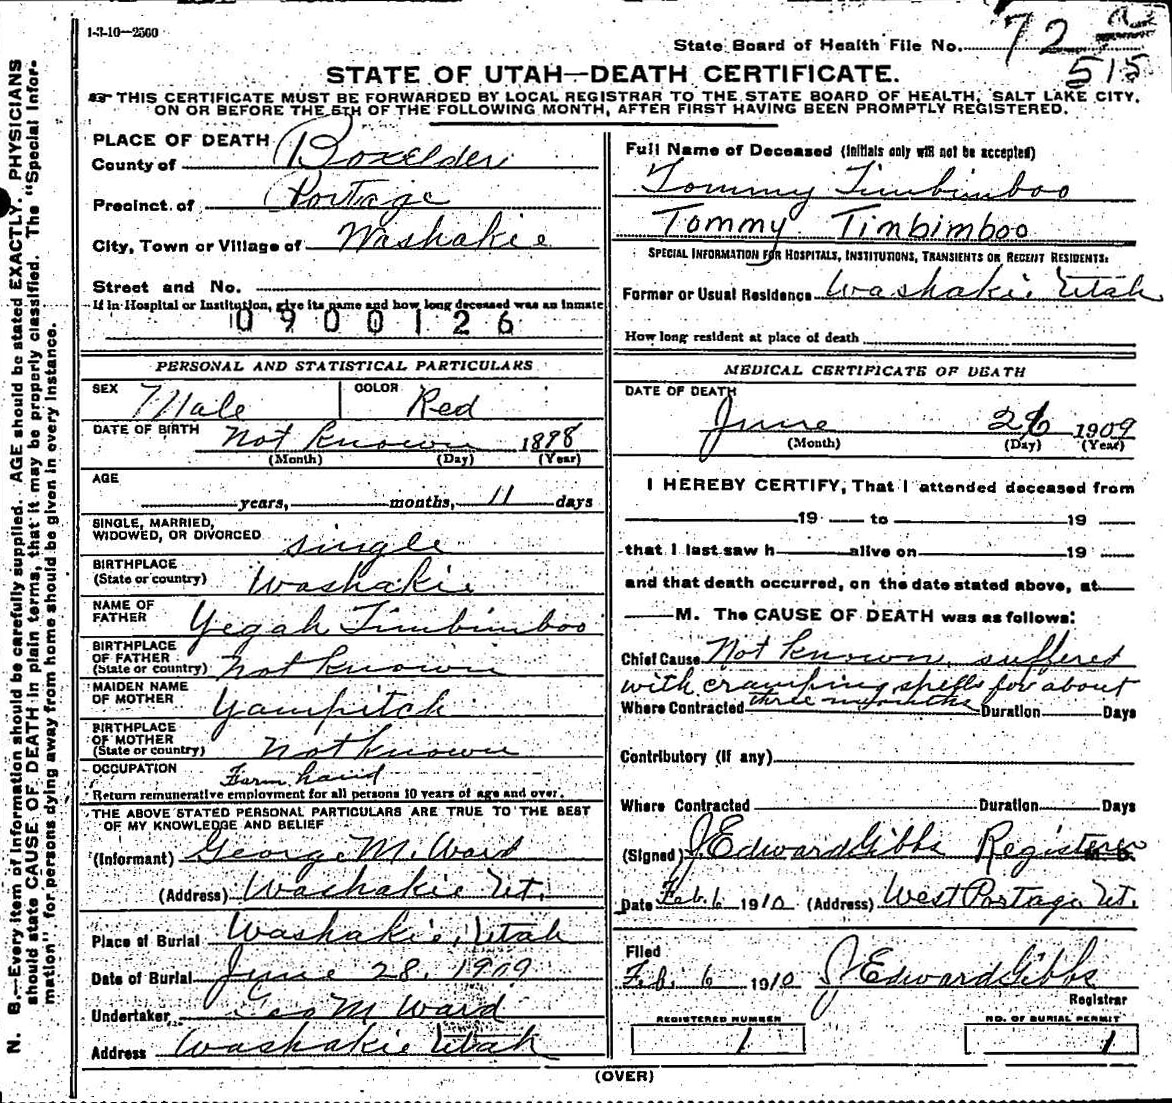 1-3-10—2500
State Board of Health File No. 72 a
515
STATE OF UTAH—DEATH CERTIFICATE.
THIS CERTIFICATE MUST BE FORWARDED BY LOCAL REGISTRAR TO THE STATE BOARD OF HEALTH, SALT LAKE CITY,
ON OR BEFORE THE 5TH OF THE FOLLOWING MONTH, AFTER FIRST HAVING BEEN PROMPTLY REGISTERED.
N. B.—Every item of information should be carefully supplied. AGE should be stated EXACTLY. PHYSICIANS
should state CAUSE OF DEATH in plain terms, that it may be properly classified. The "Special Infor-
mation" for persons dying away from home should be given in every instance.
PLACE OF DEATH
County of Boxelder
Precinct of Portage
City, Town or Village of Washakie
Street and No.
If in Hospital or Institution, give its name and how long deceased was an inmate
0900126
PERSONAL AND STATISTICAL PARTICULARS
SEX Male COLOR Red
DATE OF BIRTH Not Known 1898
(Month) (Day) (Year)
AGE
years, months, 11 days
SINGLE, MARRIED,
WIDOWED, OR DIVORCED single
BIRTHPLACE
(State or country) Washakie
NAME OF
FATHER Yegah Timbimboo
BIRTHPLACE
OF FATHER
(State or country) not known
MAIDEN NAME
OF MOTHER Yampitch
BIRTHPLACE
OF MOTHER
(State or country) not known
OCCUPATION Farm hand
Return remunerative employment for all persons 10 years of age and over.
THE ABOVE STATED PERSONAL PARTICULARS ARE TRUE TO THE BEST
OF MY KNOWLEDGE AND BELIEF
(Informant) George M. Ward
(Address) Washakie Ut.
Place of Burial Washakie, Utah
Date of Burial June 28, 1909
Undertaker Geo M Ward
Address Washakie Utah
Full Name of Deceased (Initials only will not be accepted)
Tommy Timbimboo
Tommy Timbimboo
SPECIAL INFORMATION FOR HOSPITALS, INSTITUTIONS, TRANSIENTS OR RECENT RESIDENTS:
Former or Usual Residence Washakie Utah
How long resident at place of death
MEDICAL CERTIFICATE OF DEATH
DATE OF DEATH
June 26 1909
(Month) (Day) (Year)
I HEREBY CERTIFY, That I attended deceased from
19 to 19
that I last saw h alive on 19
and that death occurred, on the date stated above, at
M. The CAUSE OF DEATH was as follows:
Chief Cause Not known, suffered
with cramping spells for about
three months
Where Contracted Duration Days
Contributory (if any)
Where Contracted Duration Days
(Signed) J Edward Gibbs Registerer
Date Feb. 6 1910 (Address) West Portage Ut.
Filed
Feb. 6 1910 J Edward Gibbs
Registrar
REGISTERED NUMBER NO. OF BURIAL PERMIT
1 1
(OVER)